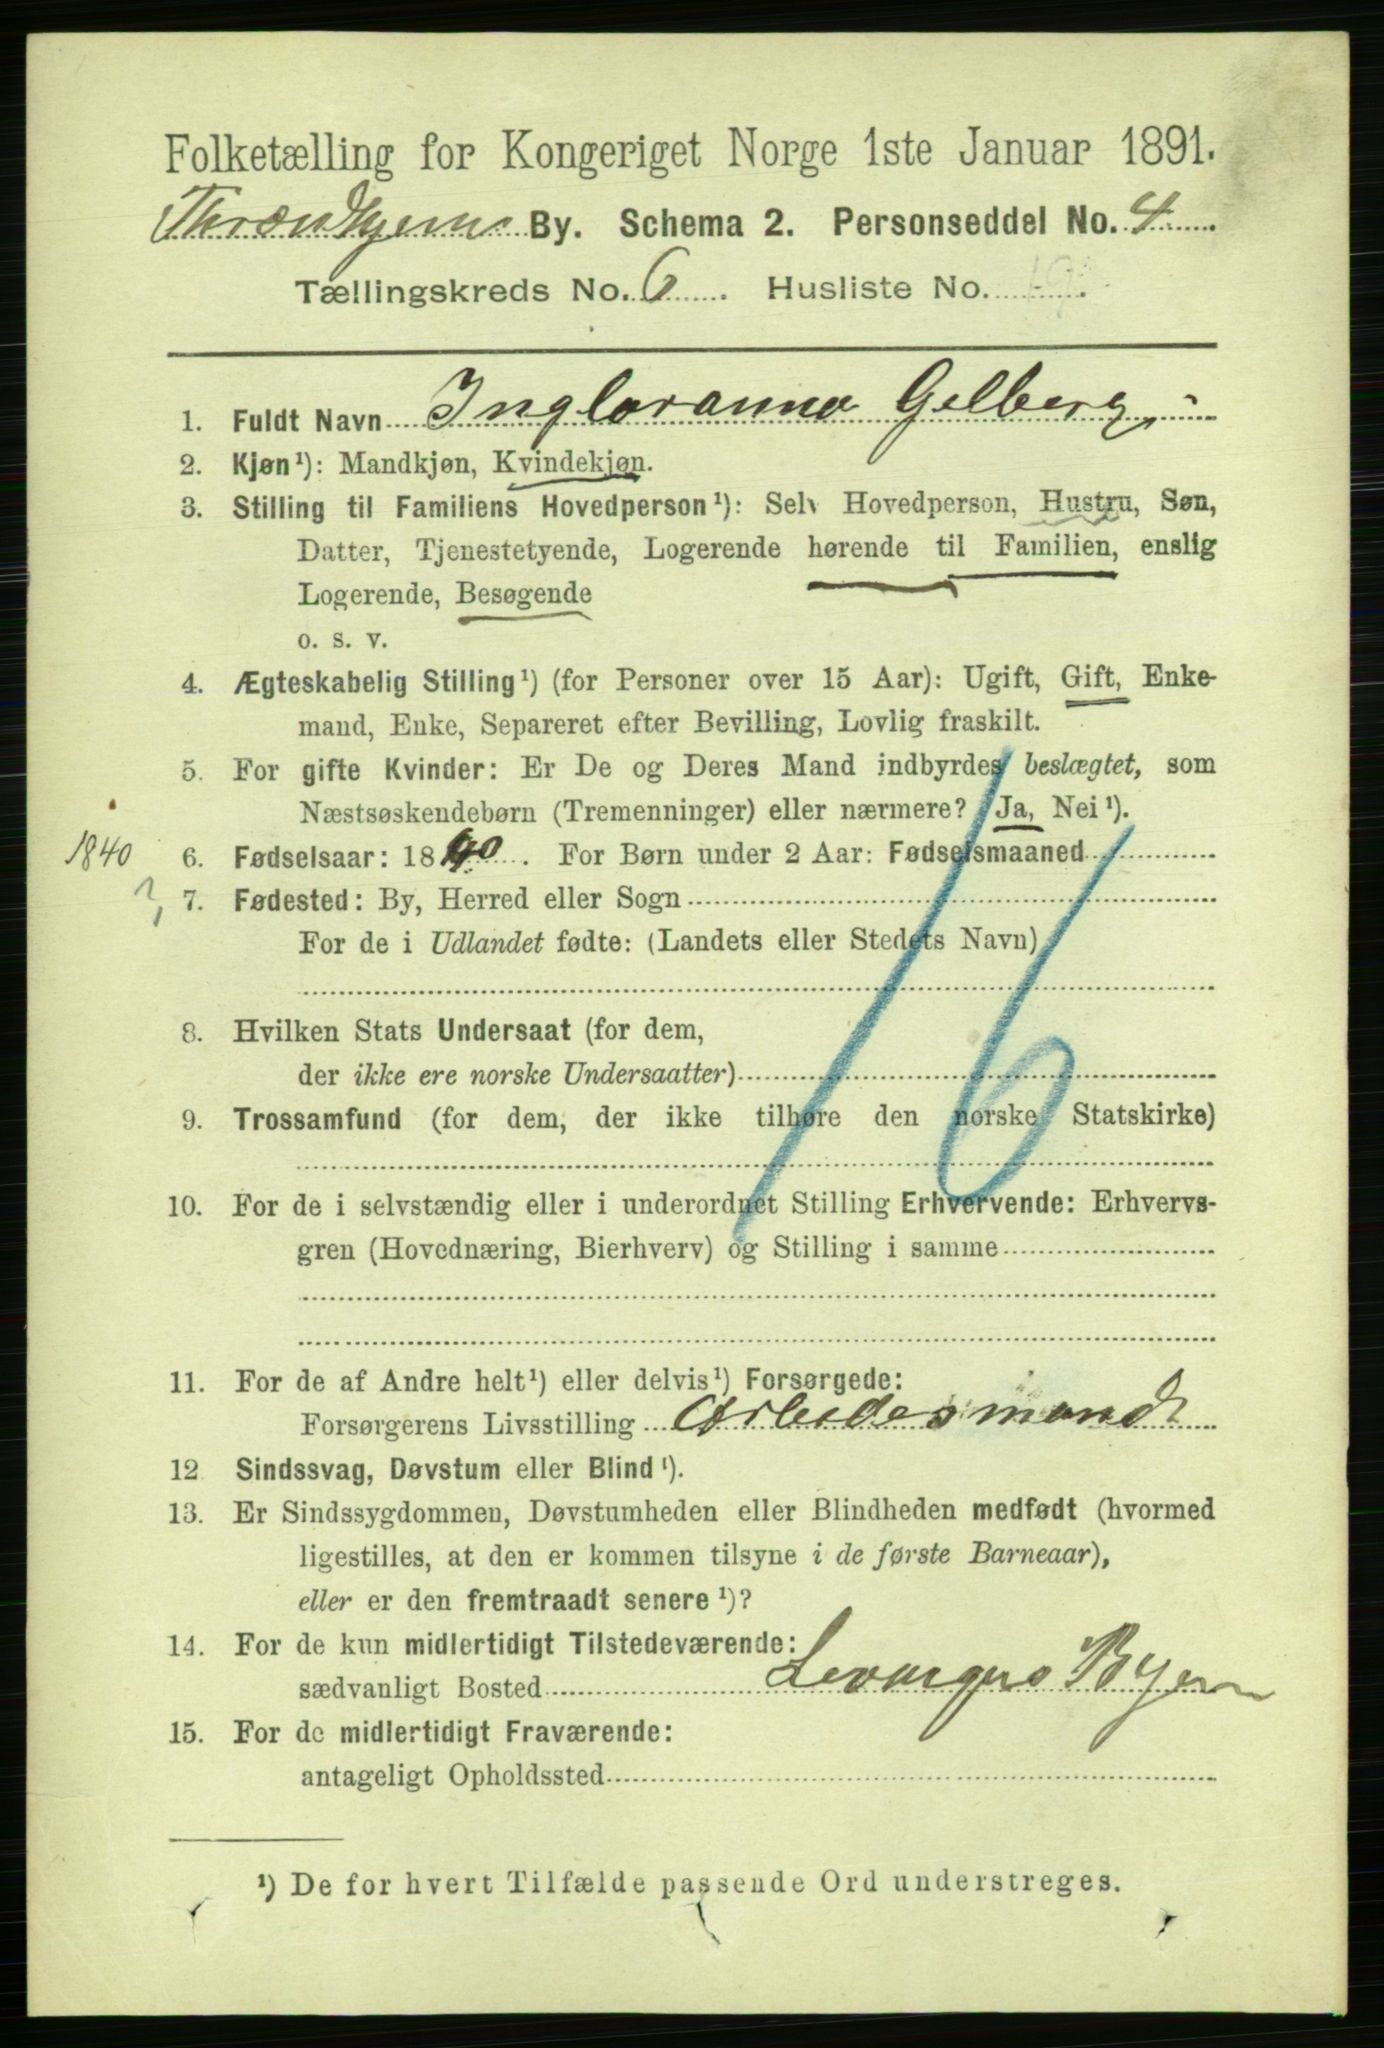 Folketælling for Kongeriget Norge 1ste Januar 1891.
Throndhjems By. Schema 2. Personseddel No. 4
Tællingskreds No. 6. Husliste No.
1. Fuldt Navn Ingloranna Gelberg
2. Kjøn¹): Mandkjøn, Kvindekjøn.
3. Stilling til Familiens Hovedperson¹): Selv Hovedperson, Hustru, Søn,
Datter, Tjenestetyende, Logerende hørende til Familien, enslig
Logerende, Besøgende
o. s. v.
4. Ægteskabelig Stilling¹) (for Personer over 15 Aar): Ugift, Gift, Enke-
mand, Enke, Separeret efter Bevilling, Lovlig fraskilt.
5. For gifte Kvinder: Er De og Deres Mand indbyrdes beslægtet, som
Næstsøskendebørn (Tremenninger) eller nærmere? Ja, Nei¹).
1840 6. Fødselsaar: 1840. For Børn under 2 Aar: Fødselsmaaned
? 7. Fødested: By, Herred eller Sogn
For de i Udlandet fødte: (Landets eller Stedets Navn)
16
8. Hvilken Stats Undersaat (for dem,
der ikke ere norske Undersaatter)
9. Trossamfund (for dem, der ikke tilhøre den norske Statskirke)
10. For de i selvstændig eller i underordnet Stilling Erhvervende: Erhvervs-
gren (Hovednæring, Bierhverv) og Stilling i samme
11. For de af Andre helt¹) eller delvis¹) Forsørgede:
Forsørgerens Livsstilling Arbeidesmand
12 Sindssvag, Døvstum eller Blind¹).
13. Er Sindssygdommen, Døvstumheden eller Blindheden medfødt (hvormed
ligestilles, at den er kommen tilsyne i de første Barneaar),
eller er den fremtraadt senere¹)?
14. For de kun midlertidigt Tilstedeværende:
sædvanligt Bosted Levangers Byen
15. For de midlertidigt Fraværende:
antageligt Opholdssted
¹) De for hvert Tilfælde passende Ord understreges.